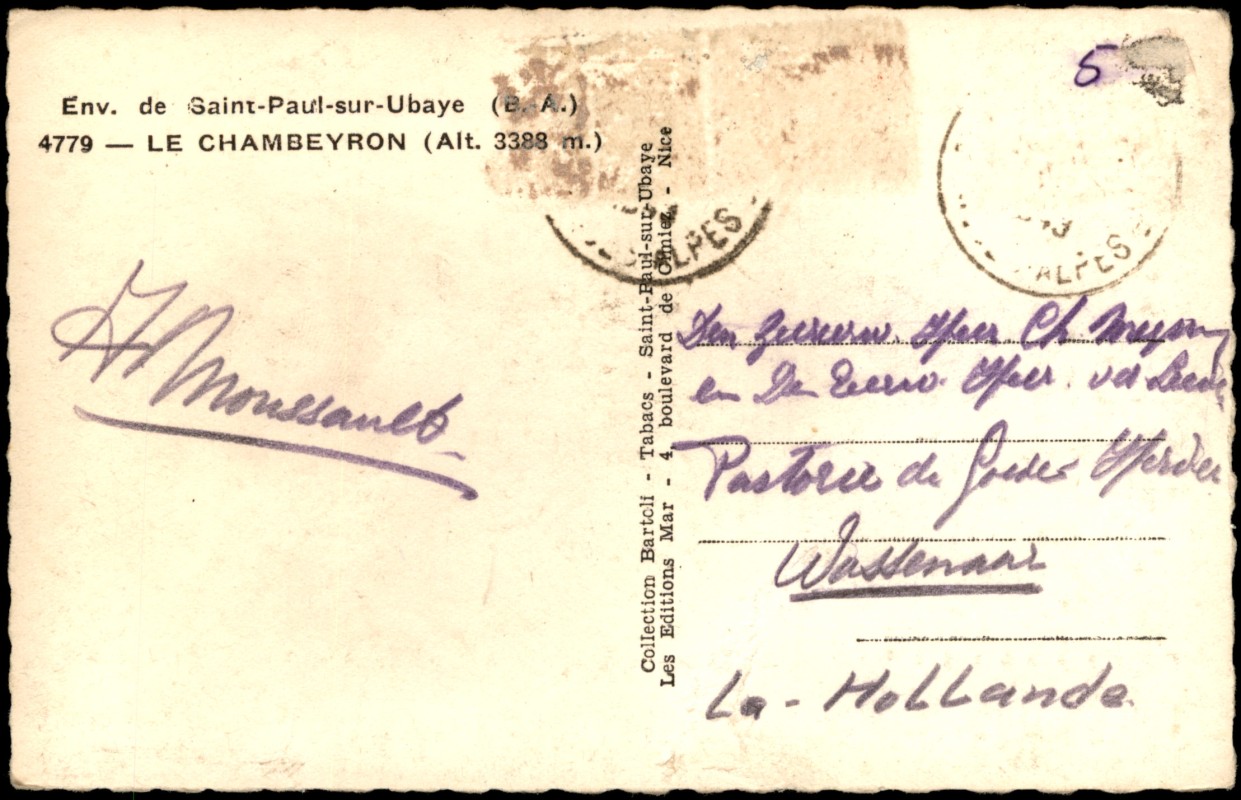 Env. de Saint-Paul-sur-Ubaye (B.-A.)
4779 — LE CHAMBEYRON (Alt. 3388 m.)
5
ALPES
ALPES
Collection Bartoli - Tabacs - Saint-Paul-sur-Ubaye
Les Editions Mar - 4, boulevard de Cimiez - Nice
Moussault
Den Heer Ch
en Den Heer
Pastorie de Goede Herder
Wassenaar
La - Hollande